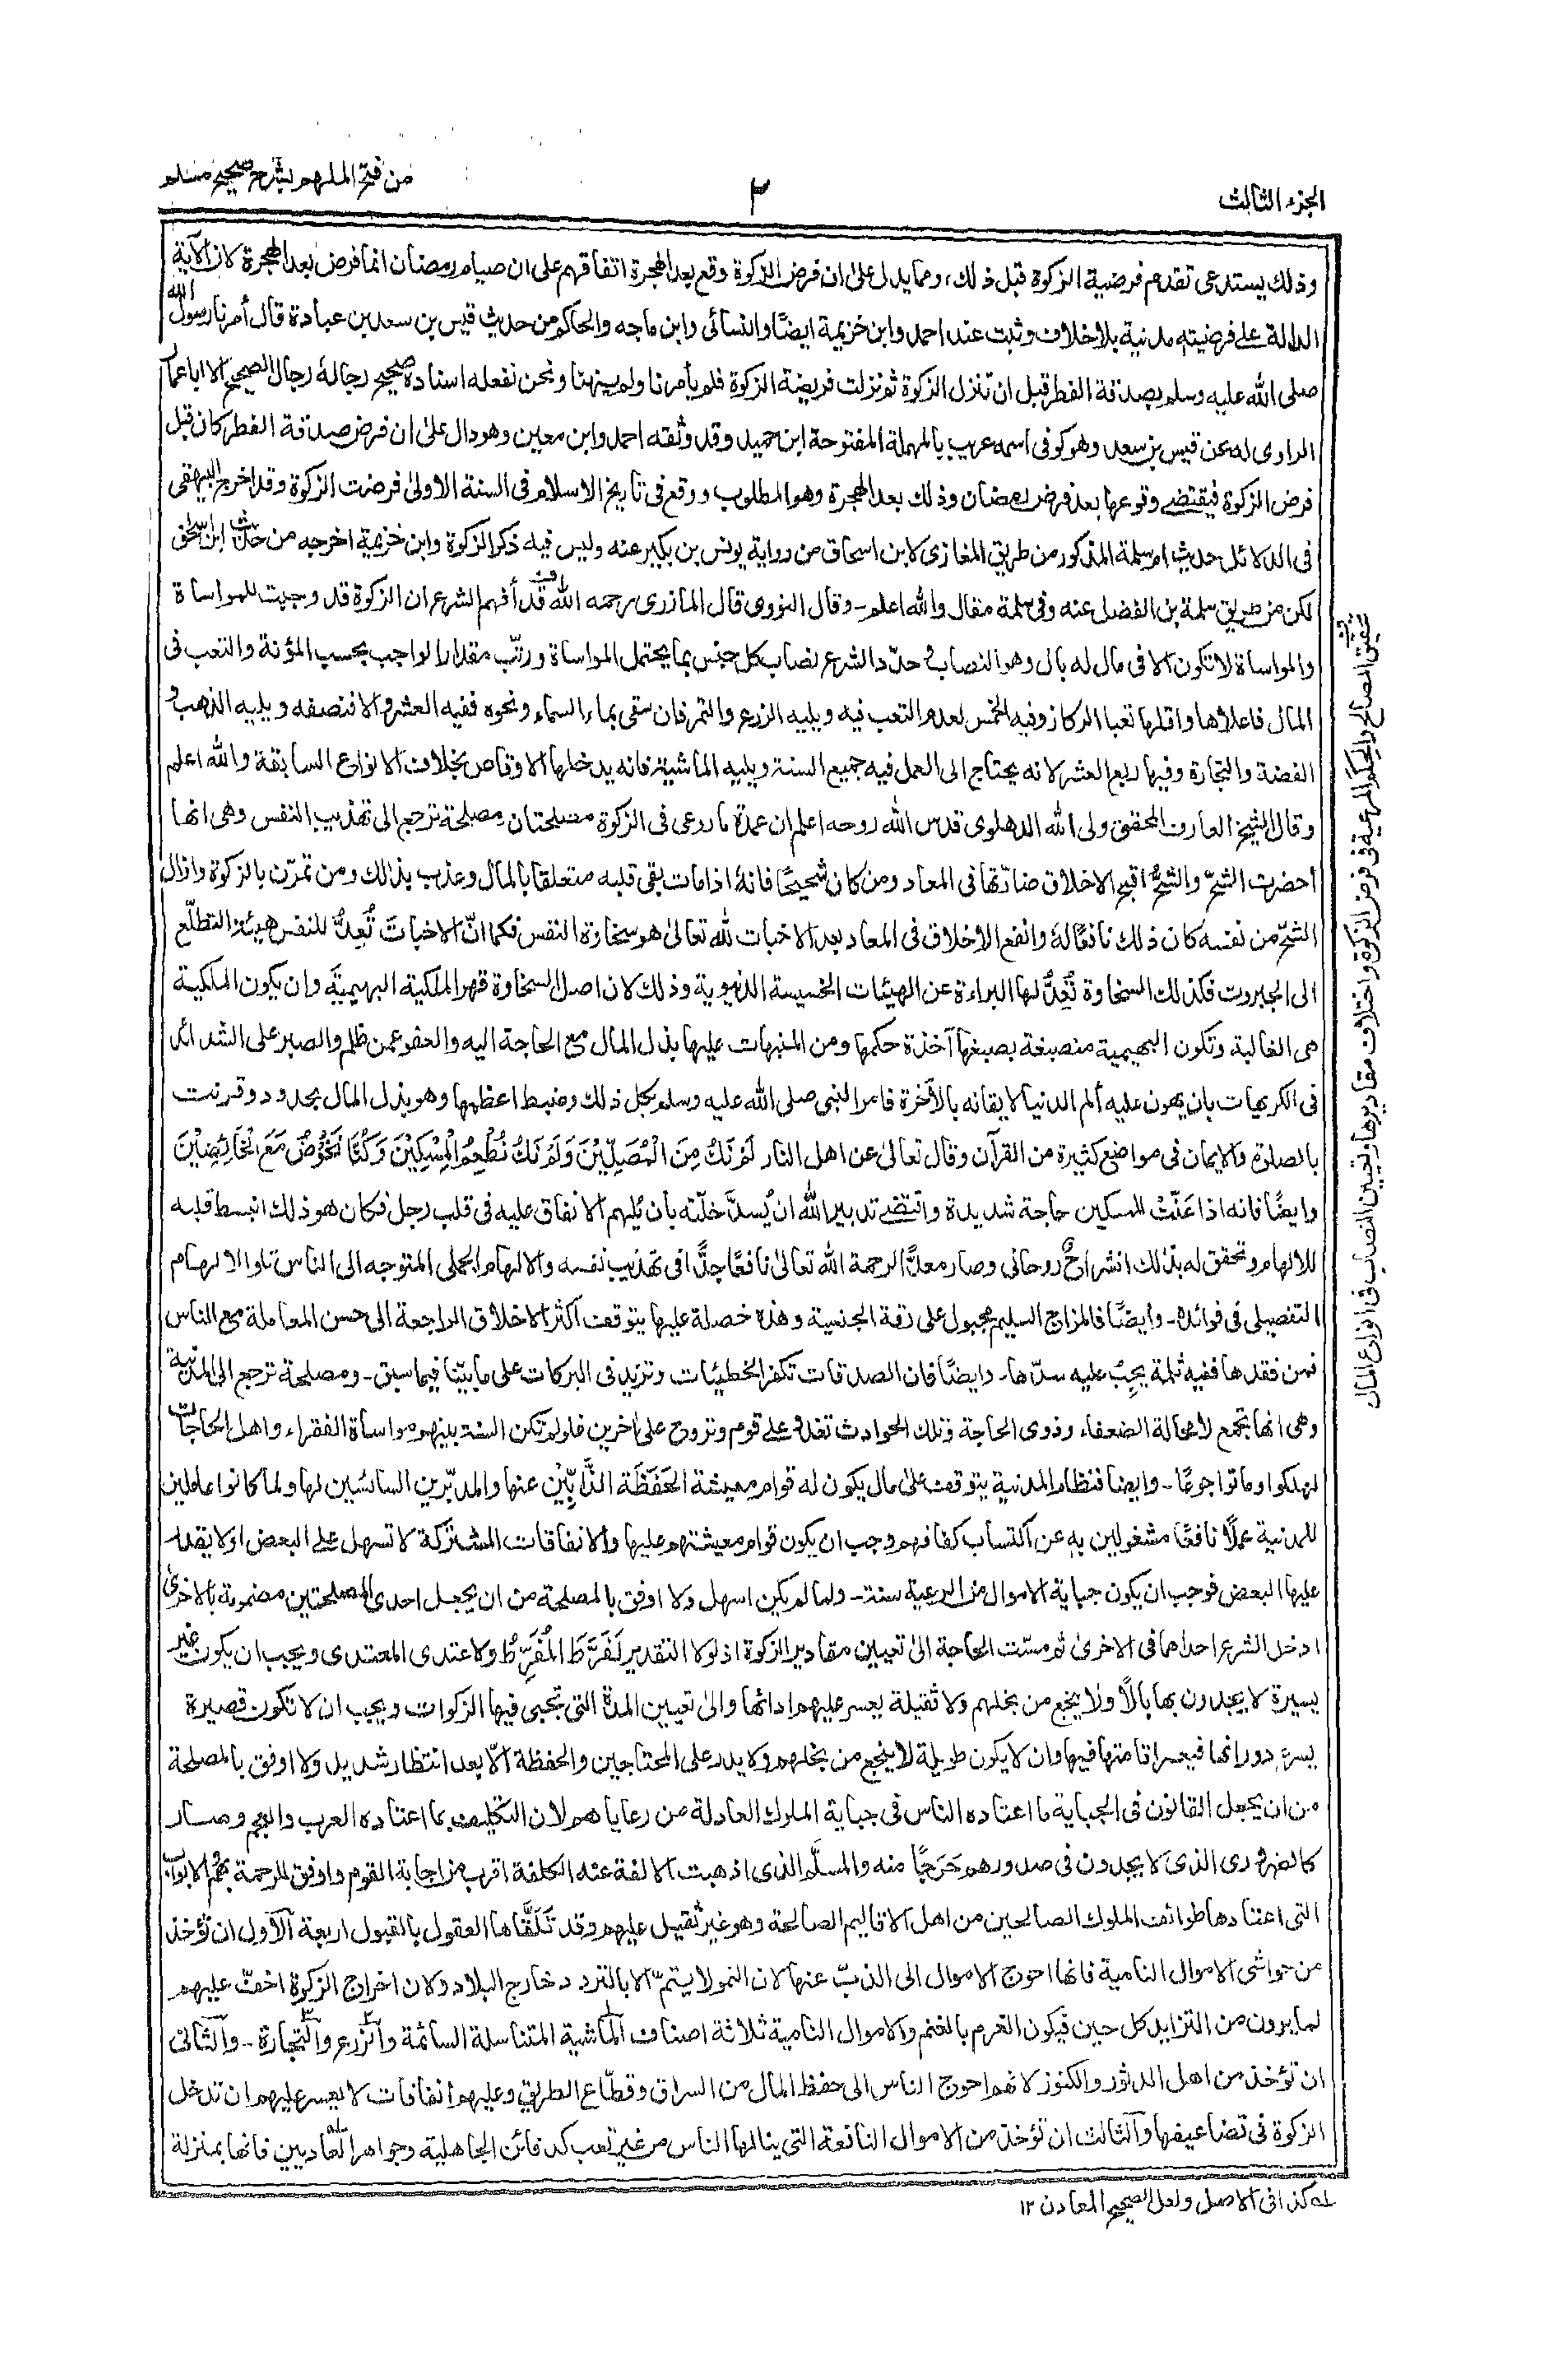 الجزء الثالث
٢
من فتح الملهم بشرح صحيح مسلم
وذلك يستدعى تقدم فرضية الزكوة قبل ذلك، ومما يدل على ان فرض الزكوة وقع بعد الهجرة اتفاقهم على ان صيام رمضان انما فرض بعد الهجرة لان الآية
الدالة على فرضيته مدنية بلا خلاف وثبت عند احمد وابن خزيمة ايضًا والنسائى وابن ماجه والحاكم من حديث قيس بن سعد بن عبادة قال أمرنا رسول الله
صلى الله عليه وسلم بصدقة الفطر قبل ان تنزل الزكوة ثم نزلت فريضة الزكوة فلم يأمرنا ولم ينهنا ونحن نفعله اسناده صحيح رجاله رجال الصحيح الا ابا عمار
الراوى له عن قيس بن سعد وهو كوفى اسمه عريب بالمهملة المفتوحة ابن حميد وقد وثقه احمد وابن معين وهو دال على ان فرض صدقة الفطر كان قبل
فرض الزكوة فيقتضى وقوعها بعد فرض رمضان وذلك بعد الهجرة وهو المطلوب ووقع فى تاريخ الاسلام فى السنة الاولى فرضت الزكوة وقد اخرج البيهقى
فى الدلائل حديث ام سلمة المذكور من طريق المغازى لابن اسحاق من رواية يونس بن بكير عنه وليس فيه ذكر الزكوة وابن خزيمة اخرجه من حديث ابن اسحق
لكن من طريق سلمة بن الفضل عنه وفى سلمة مقال والله اعلم - وقال النووى قال المازرى رحمه الله قد أفهم الشرع ان الزكوة قد وجبت للمواساة
والمواساة لا تكون الا فى مال له بال وهو النصاب و حدّد الشرع نصاب كل جنس بما يحتمل المواساة ورتّب مقدار الواجب بحسب المؤنة والتعب فى
المال فاعلاها واقلها تعبا الركاز وفيه الخمس لعدم التعب فيه ويليه الزرع والتمر فان سقى بماء السماء ونحوه ففيه العشر والا فنصفه ويليه الذهب و
الفضة والتجارة وفيها ربع العشر لانه يحتاج الى العمل فيه جميع السنة ويليه الماشية فانه يدخلها الاوقاص بخلاف الانواع السابقة والله اعلم
وقال الشيخ العارف المحقق ولى الله الدهلوى قدس الله روحه اعلم ان عمدة ما روعى فى الزكوة مصلحتان مصلحة ترجع الى تهذيب النفس وهى انها
احضرت الشحّ والشحُّ اقبح الاخلاق ضارّتها فى المعاد ومن كان شحيحًا فانه اذا مات بقى قلبه متعلقا بالمال وعذب بذلك ومن تمرّن بالزكوة وازال
الشحّ من نفسه كان ذلك نافعًا له وانفع الاخلاق فى المعاد بعد الاخبات لله تعالى هو سخاوة النفس فكما انّ الاخبات تُعِدُّ للنفس هيئة التطلّع
الى الجبروت فكذلك السخاوة تُعِدُّ لها البراءة عن الهيئات الخسيسة الدنيوية وذلك لان اصل السخاوة قهر الملكية البهيمية وان يكون الملكية
هى الغالبة، وتكون البهيمية منصبغة بصبغها آخذة حكمها ومن المنبهات عليها بذل المال مع الحاجة اليه والعفو عمن ظلم والصبر على الشدائد
فى الكريهات بان يهون عليه ألم الدنيا لايقانه بالآخرة فامر النبى صلى الله عليه وسلم بكل ذلك وضبط اعظمها وهو بذل المال بحدود وقرنت
بالصلوة والايمان فى مواضع كثيرة من القرآن وقال تعالى عن اهل النار لَمْ نَكُ مِنَ الْمُصَلِّيْنَ وَلَمْ نَكُ نُطْعِمُ الْمِسْكِيْنَ وَكُنَّا نَخُوْضُ مَعَ الْخَائِضِيْنَ
وايضًا فانه اذا عَنّتْ للمسكين حاجة شديدة واقتضى تدبير الله ان يُسدَّ خلّته بأن يُلهم الانفاق عليه فى قلب رجل فكان هو ذلك انبسط قلبه
للالهام وتحقق له بذلك انشراحٌ روحانى وصار معدًّا لرحمة الله تعالى نافعًا جدًّا فى تهذيب نفسه والالهام الجملى المتوجه الى الناس تلو الالهام
التفصيلى فى فوائده - وأيضًا فالمزاج السليم مجبول على رقة الجنسية وهذه خصلة عليها يتوقف اكثر الاخلاق الراجعة الى حسن المعاملة مع الناس
فمن فقدها ففيه ثلمة يجب عليه سدّها - وايضًا فان الصدقات تكفر الخطيئات وتزيد فى البركات على ما بيّنا فيما سبق - ومصلحة ترجع الى المدنية
وهى انها تجمع لا محالة الضعفاء وذوى الحاجة وتلك الحوادث تغدو على قوم وتروح على اخرين فلو لم تكن السنة بينهم مواساة الفقراء واهل الحاجات
لهلكوا وماتوا جوعًا - وايضا فنظام المدنية يتوقف على مال يكون له قوام معيشة الحَفَظَة الذّابّيْن عنها والمدبّرين السائسين لها ولما كانوا عاملين
للمدنية عملًا نافعًا مشغولين به عن اكتساب كفافهم وجب ان يكون قوام معيشتهم عليها والانفاقات المشتركة لا تسهل على البعض او لا يقدر
عليها البعض فوجب ان يكون جباية الاموال من الرعية سنة - ولما لم يكن اسهل ولا اوفق بالمصلحة من ان يجعل احدى المصلحتين مضمومة بالاخرى
ادخل الشرع احداهما فى الاخرى ثم مسّت الحاجة الى تعيين مقادير الزكوة اذ لولا التقدير لَفَرَّطَ الْمُفَرِّطُ ولاعتدى المعتدى ويجب ان يكون غير
يسيرة لا يجدون بها بالًا ولا ينجع من بخلهم ولا ثقيلة يعسر عليهم اداؤها والى تعيين المدة التى تجبى فيها الزكوات ويجب ان لا تكون قصيرة
يسرع دورانها فيعسر اقامتها فيها وان لا يكون طويلة لا ينجع من بخلهم ولا يدر على المحتاجين والحفظة الّا بعد انتظار شديد ولا اوفق بالمصلحة
من ان يجعل القانون فى الجباية ما اعتاده الناس فى جباية الملوك العادلة من رعاياهم لان التكليف بما اعتاده العرب والعجم وصار
كالضرورى الذى لا يجدون فى صدورهم حَرَجًا منه والمسلَّم الذى اذهبت الالفة عنه الكلفة اقرب من اجابة القوم واوفق للرحمة بهم والابواب
التى اعتادها طوائف الملوك الصالحين من اهل الاقاليم الصالحة وهو غير ثقيل عليهم وقد تَلَقَّاها العقول بالقبول اربعة الاول ان تؤخذ
من حواشى الاموال النامية فانها احوج الاموال الى الذبّ عنها لان النمو لا يتمّ الا بالتردد خارج البلاد ولان اخراج الزكوة اخفّ عليهم
لما يرون من التزايد كل حين فيكون الغرم بالغنم والاموال النامية ثلاثة اصناف الماشية المتناسلة السائمة والزرع والتجارة - والثانى
ان تؤخذ من اهل الدثور والكنوز لانهم احوج الناس الى حفظ المال من السراق وقطّاع الطريق وعليهم انفاقات لا يعسر عليهم ان تدخل
الزكوة فى تضاعيفها والثالث ان تؤخذ من الاموال النافعة التى ينالها الناس من غير تعب كدفائن الجاهلية وجواهر العاديين فانها بمنزلة
له كذا فى الاصل ولعل الصحيح المعادن ١٢
تحقيق المصالح والحكم المرعية فى فرض الزكوة واختلاف مقاديرها وتعيين النصاب فى انواع المال